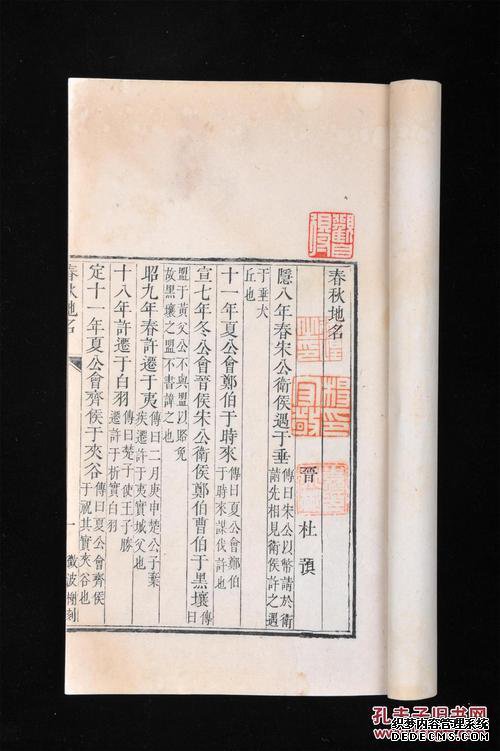 春秋地名
晉 杜預
隱八年春宋公衛侯遇于垂
傳曰宋公以幣請於衛
請先相見衛侯許之遇
于垂犬
丘也
十一年夏公會鄭伯于時來
傳曰夏公會鄭伯
于時來謀伐許也
宣七年冬公會晉侯宋公衛侯鄭伯曹伯于黑壤
傳曰
盟于黃父公不與盟以賂免
故黑壤之盟不書諱之也
昭九年春許遷于夷
傳曰二月庚申楚公子棄
疾遷許于夷實城父也
十八年許遷于白羽
傳曰楚子使王子勝
遷許于析實白羽
定十一年夏公會齊侯于夾谷
傳曰夏公會齊侯
于祝其實夾谷也
春秋地名
一
微波榭刻
孔夫子旧书网
织梦内容管理系统
DEDECMS.COM